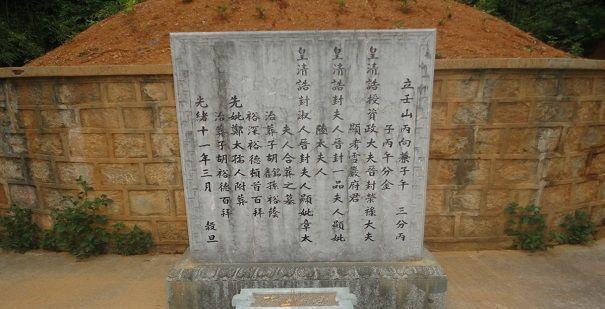 立壬山丙向兼子午 三分丙
子丙午分金
皇清誥授資政大夫晉封榮祿大夫
顯考雪巖府君
皇清誥封夫人晉封一品夫人顯妣
陸太夫人
皇清誥封淑人晉封夫人顯妣章太
夫人合葬之墓
治葬子胡 孫裕蔭
裕深裕德頓首百拜
先妣鄭太孺人附葬
治葬子胡裕德百拜
光緒十一年三月 穀旦